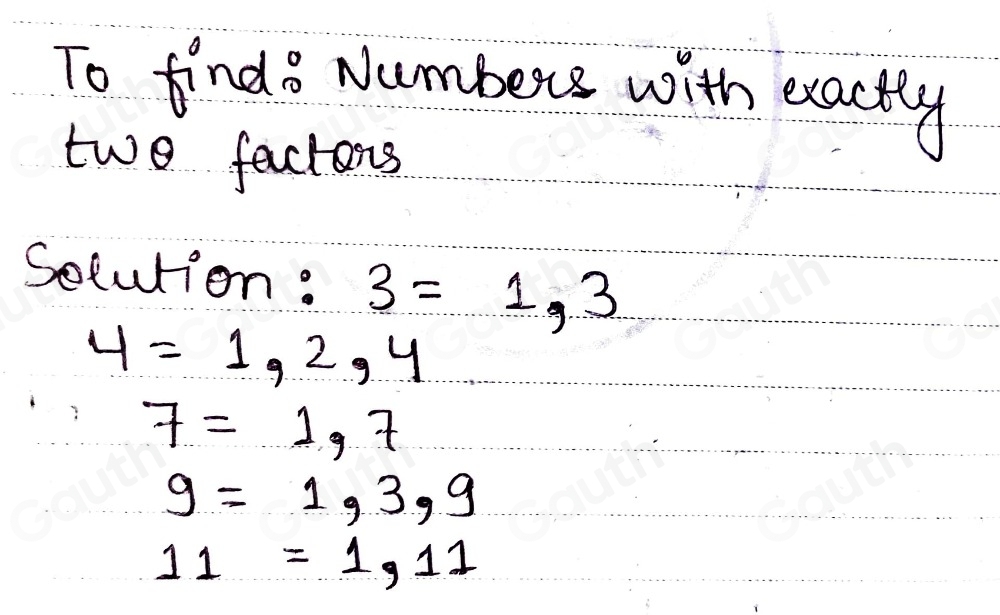 To find: Numbers with exactly
two factors
Solution: 3 = 1, 3
4 = 1, 2, 4
7 = 1, 7
9 = 1, 3, 9
11 = 1, 11
Gauth